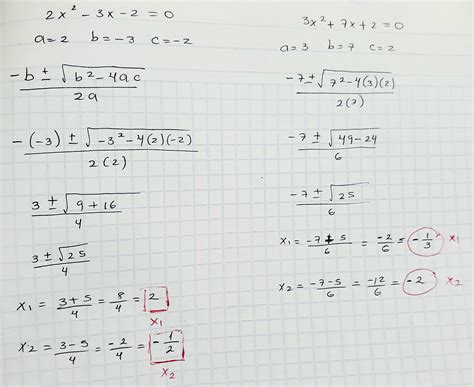 2x² - 3x - 2 = 0
a = 2 b = -3 c = -2
-b ± √(b² - 4ac) / 2a
-(-3) ± √(-3² - 4(2)(-2)) / 2(2)
3 ± √(9 + 16) / 4
3 ± √25 / 4
x₁ = (3 + 5)/4 = 8/4 = 2
x₁
x₂ = (3 - 5)/4 = -2/4 = -1/2
x₂
3x² + 7x + 2 = 0
a = 3 b = 7 c = 2
-7 ± √(7² - 4(3)(2)) / 2(3)
-7 ± √(49 - 24) / 6
-7 ± √25 / 6
x₁ = (-7 + 5)/6 = -2/6 = -1/3 x₁
x₂ = (-7 - 5)/6 = -12/6 = -2 x₂